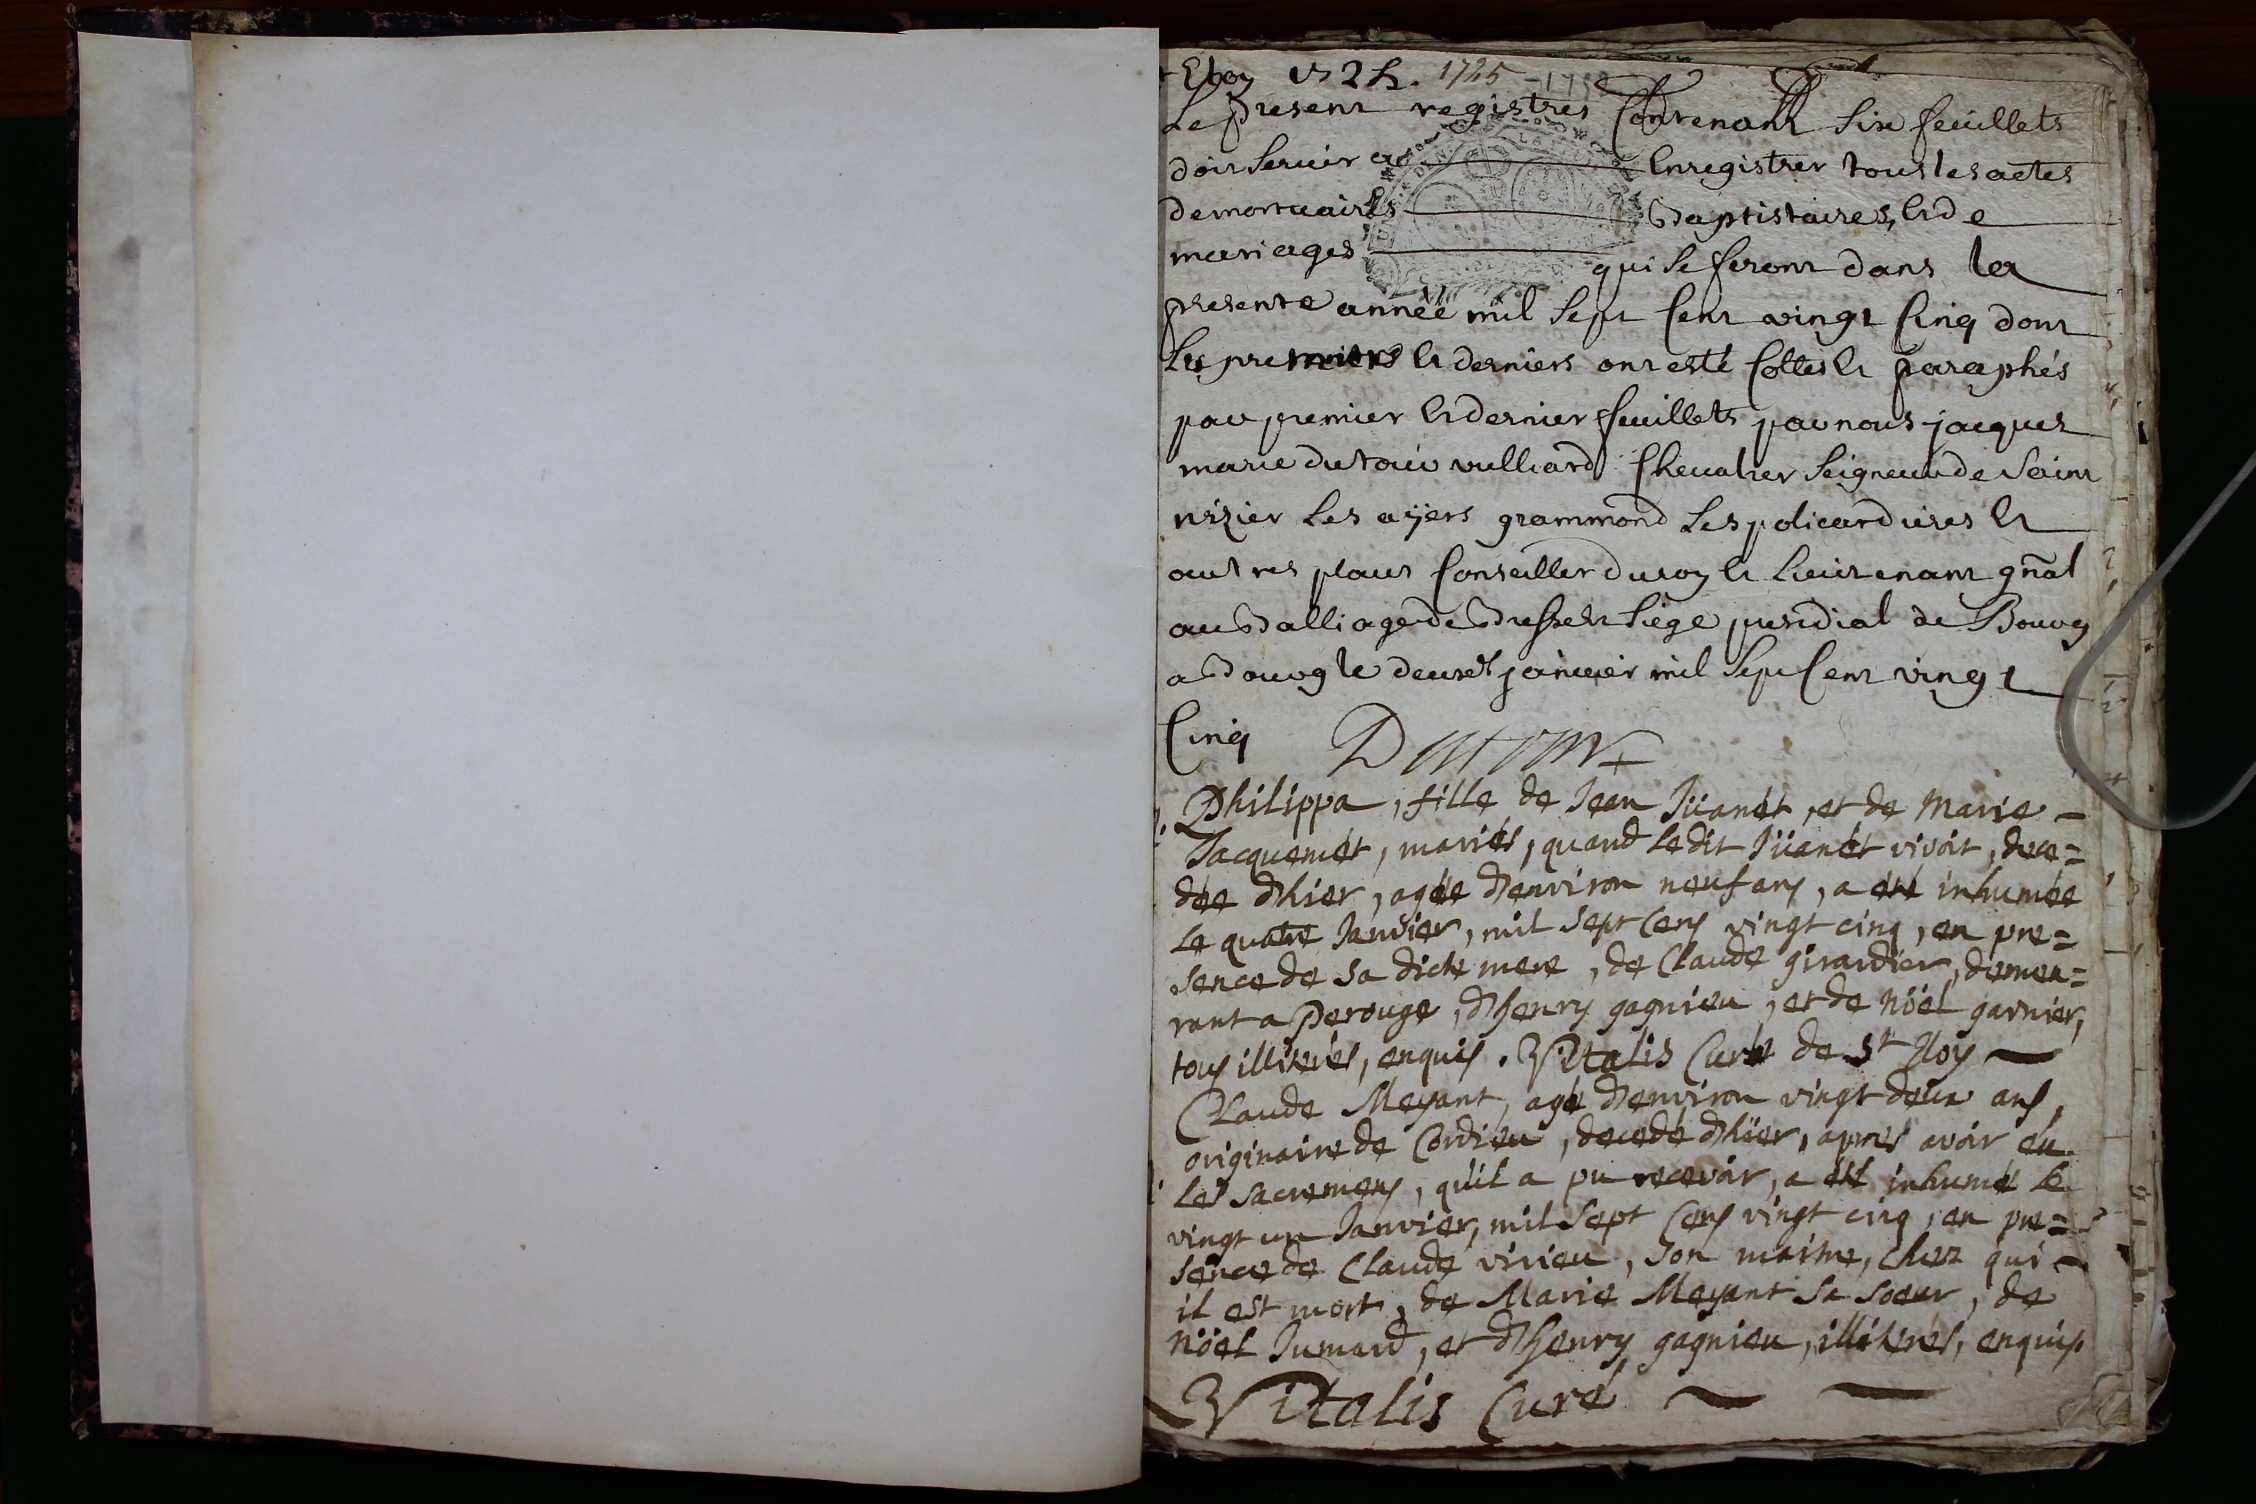 Eloy 1725 -
Le present registres Contenant Six feuillets
doit Servir a Enregistrer tous les actes
de mortuaires Baptistaires, et de
mariages qui se feront dans la
presente année mil Sept Cent vingt Cinq dont
Les premiers et derniers ont esté Cottes et paraphés
par premier et dernier feuillets par nous jacques
marie dutour vulliard Chevalier Seigneur de Saint
nizier Les grammond Les et
autres places Conseiller du roy et Lieutenant gñal
au Balliage de Bresse et Siege presidial de Bourg
a Bourg le deuxe janvier mil Sept Cent vingt
Cinq Dutour
Philippa, fille de Jean Jüanet, et de Marie
Jacquemet, mariés, quand Ledit Jüanet vivoit, dece=
dée d'hier, agée d'environ neuf ans, a été inhumée
Le quatre Janvier, mil sept cens vingt cinq, en pre=
sence de sa dicte mere, de Claude girardier, demeu=
rant a Perouge, d'henry gagnieu, et de Nöel garnier,
tous illiterés, enquis. Vitalis Curé de St Eloy
Claude Meyant, agé d'environ vingt deux ans,
originaire de Cordieu, decedé d'hier, apres avoir eu
les sacremens, qu'il a pu recevoir, a été inhumé le
vingt un Janvier, mil sept cens vingt cinq, en pre=
sence de Claude virieu, son maitre, chez qui
il est mort, de Marie Meyant sa soeur, de
Nöel Jumard, et d'henry gagnieu, illiterés, enquis
Vitalis Curé